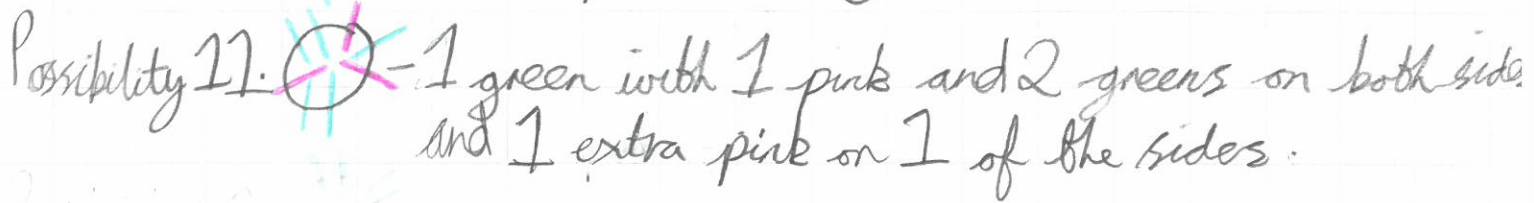 Possibility 11. - 1 green with 1 pink and 2 greens on both side
and 1 extra pink on 1 of the sides.